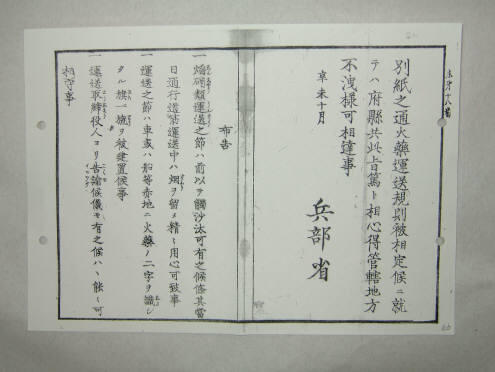 別紙之通火藥運送規則被相定候ニ就
テハ府縣共此旨篤ト相心得管轄地方
不洩様可相達事
辛未十月
兵部省
布告
一焔硝類運送之節ハ前以テ觸沙汰可有之候條其當
日通行道筋運送中ハ烟ヲ留メ精〻用心可致事
一運送之節ハ車或ハ船等赤地ニ火藥ノ二字ヲ識シ
タル旗一旒ヲ被建置候事
一運送取締役人ヨリ告諭候儀モ有之候ハヽ能〻可
相守事